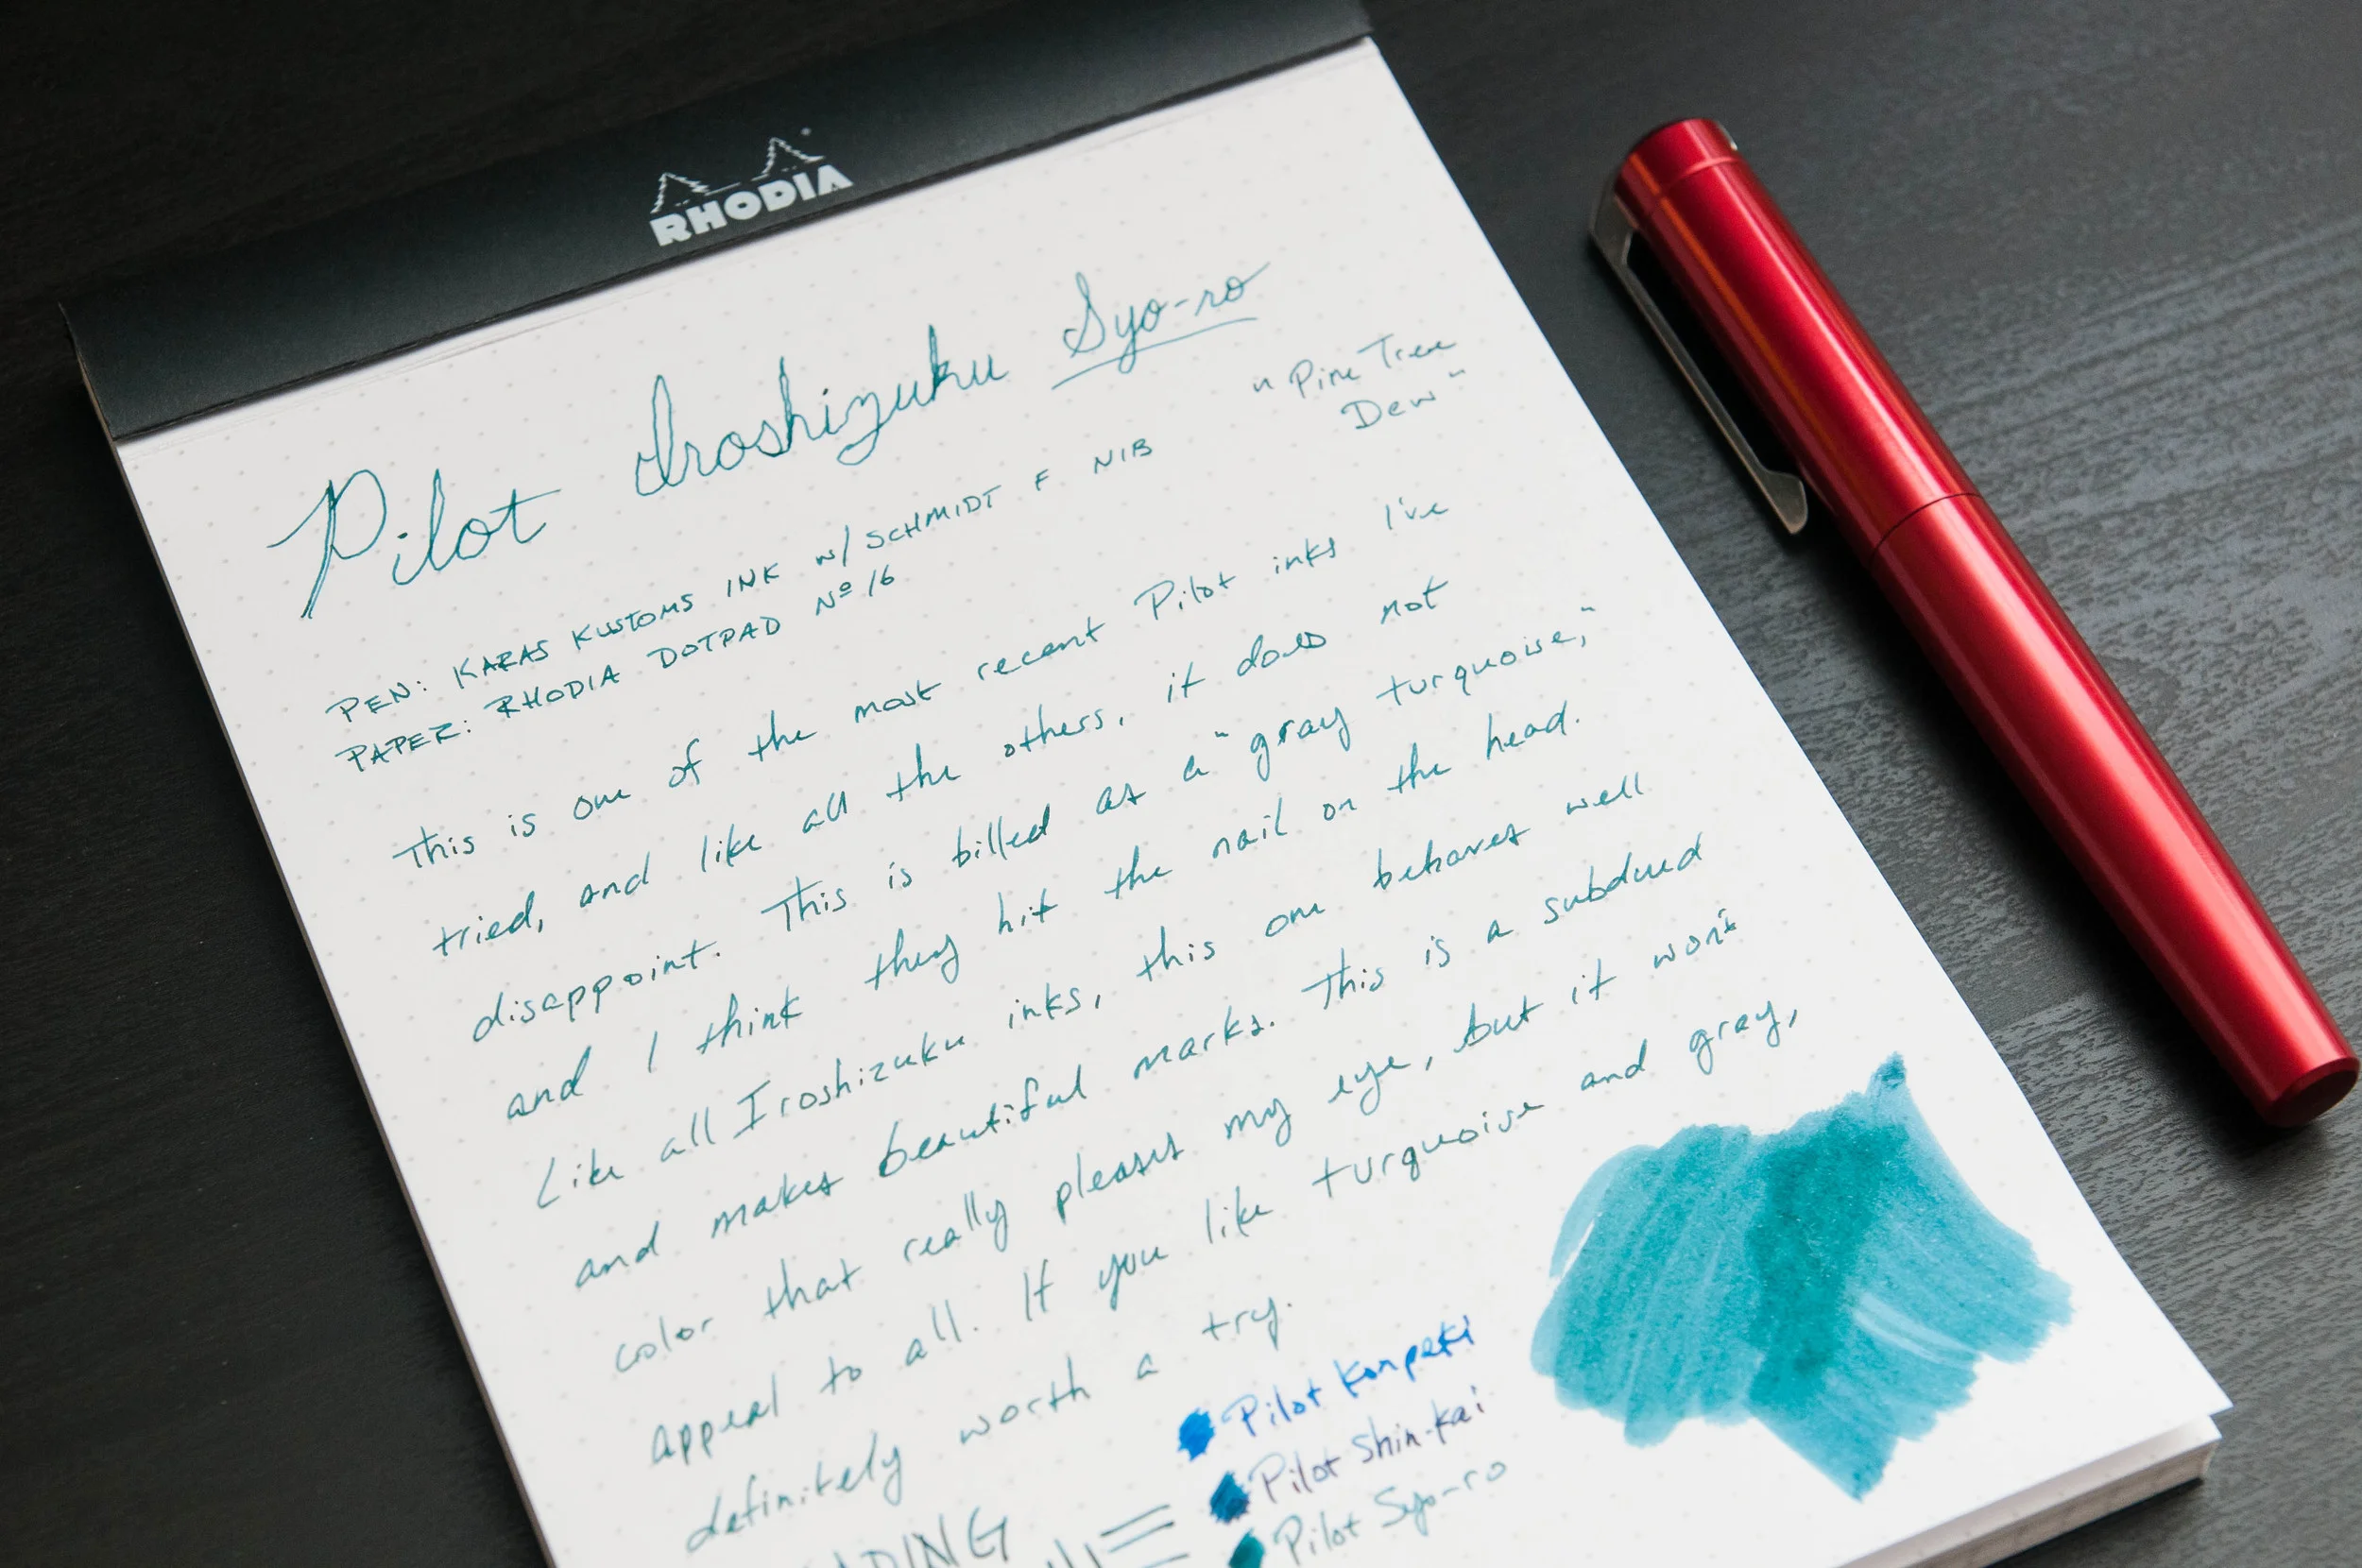 RHODIA
Pilot Iroshizuku Syo-ro
"Pine Tree
Dew"
PEN: KARAS KUSTOMS INK w/ SCHMIDT F NIB
PAPER: RHODIA DOTPAD Nº 16
This is one of the most recent Pilot inks I've
tried, and like all the others, it does not
disappoint. This is billed as a "gray turquoise,"
and I think they hit the nail on the head.
Like all Iroshizuku inks, this one behaves well
and makes beautiful marks. This is a subdued
color that really pleases my eye, but it won't
appeal to all. If you like turquoise and gray,
definitely worth a try.
Pilot Konpeki
Pilot Shin-kai
Pilot Syo-ro